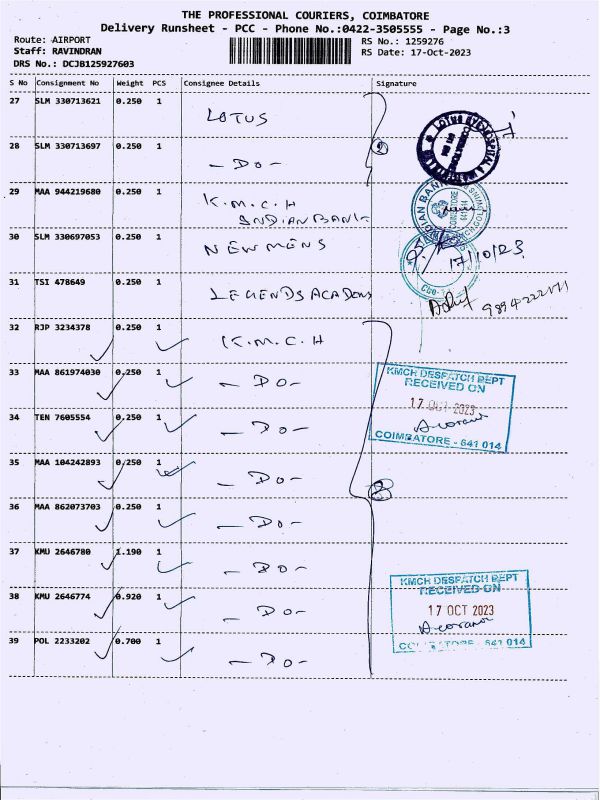 THE PROFESSIONAL COURIERS, COIMBATORE
Delivery Runsheet - PCC - Phone No.:0422-3505555 - Page No.:3
Route: AIRPORT
RS No.: 1259276
Staff: RAVINDRAN
RS Date: 17-Oct-2023
DRS No.: DCJB125927603
S No Consignment No Weight PCS Consignee Details Signature
27 SLM 330713621 0.250 1 LOTUS
28 SLM 330713697 0.250 1 - DO -
29 MAA 944219680 0.250 1 K.M.C.H
INDIAN BANK
30 SLM 330697053 0.250 1 NEWMENS
17/10/23
31 TSI 478649 0.250 1 LEGENDS ACADEMY
32 RJP 3234378 0.250 1 K.M.C.H
33 MAA 861974030 0.250 1 - DO -
KMCH DESPATCH DEPT
RECEIVED ON
17 OCT 2023
COIMBATORE - 641 014
34 TEN 7605554 0.250 1 - DO -
35 MAA 104242893 0.250 1 - DO -
36 MAA 862073703 0.250 1 - DO -
37 KMU 2646780 1.190 1 - DO -
38 KMU 2646774 0.920 1 - DO -
KMCH DESPATCH DEPT
RECEIVED ON
17 OCT 2023
COIMBATORE - 641 014
39 POL 2233202 0.700 1 - DO -